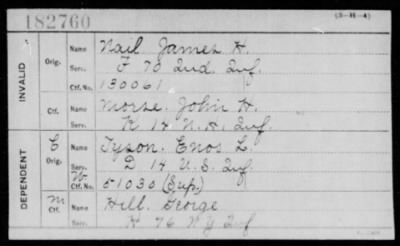 182760
(3-H-4)
INVALID
Orig.
Name Nail James H.
Serv. F 70 Ind. Inf.
Ctf. No. 130061
Ctf.
Name Morse, John H.
Serv. K 14 N.H. Inf.
DEPENDENT
C
Orig.
Name Tyson. Enos L.
Serv. D 14 U.S. Inf.
W
Ctf. No. 51030 (Sup.)
M
Ctf.
Name Hill. George
Serv. H 76 N Y Inf